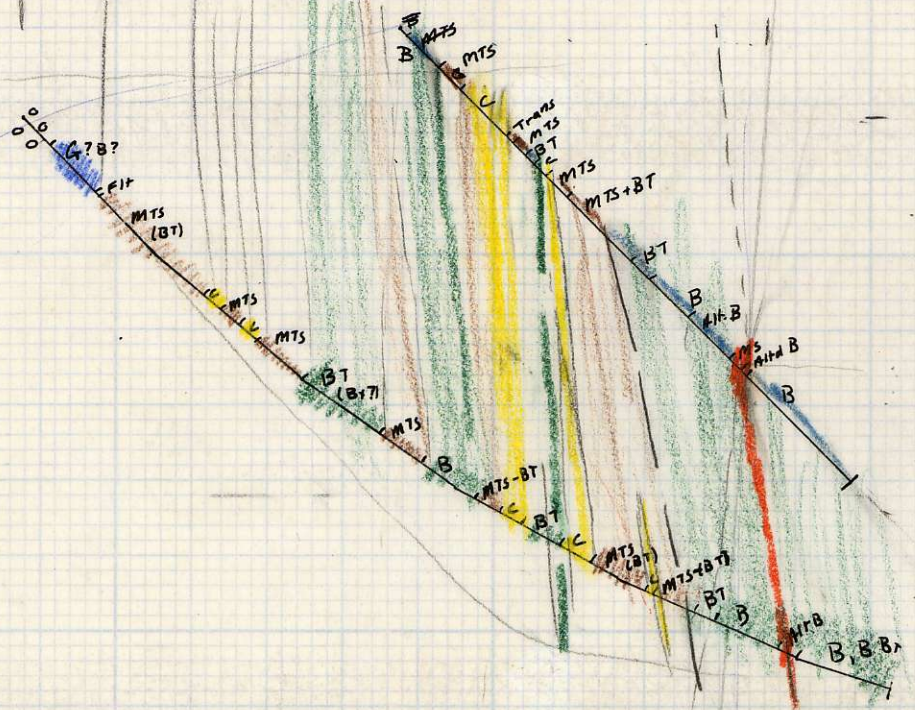 B
MTS
B
MTS
C
Trans
MTS
BT
C
MTS
MTS+BT
BT
B
Alt. B
MS
Altd B
B
O
O
O
O
G?B?
Flt
MTS
(BT)
MTS
MTS
BT
(B+?)
MTS
B
MTS-BT
C
BT
C
MTS
(BT)
MTS+(BT)
BT
B
Alt B